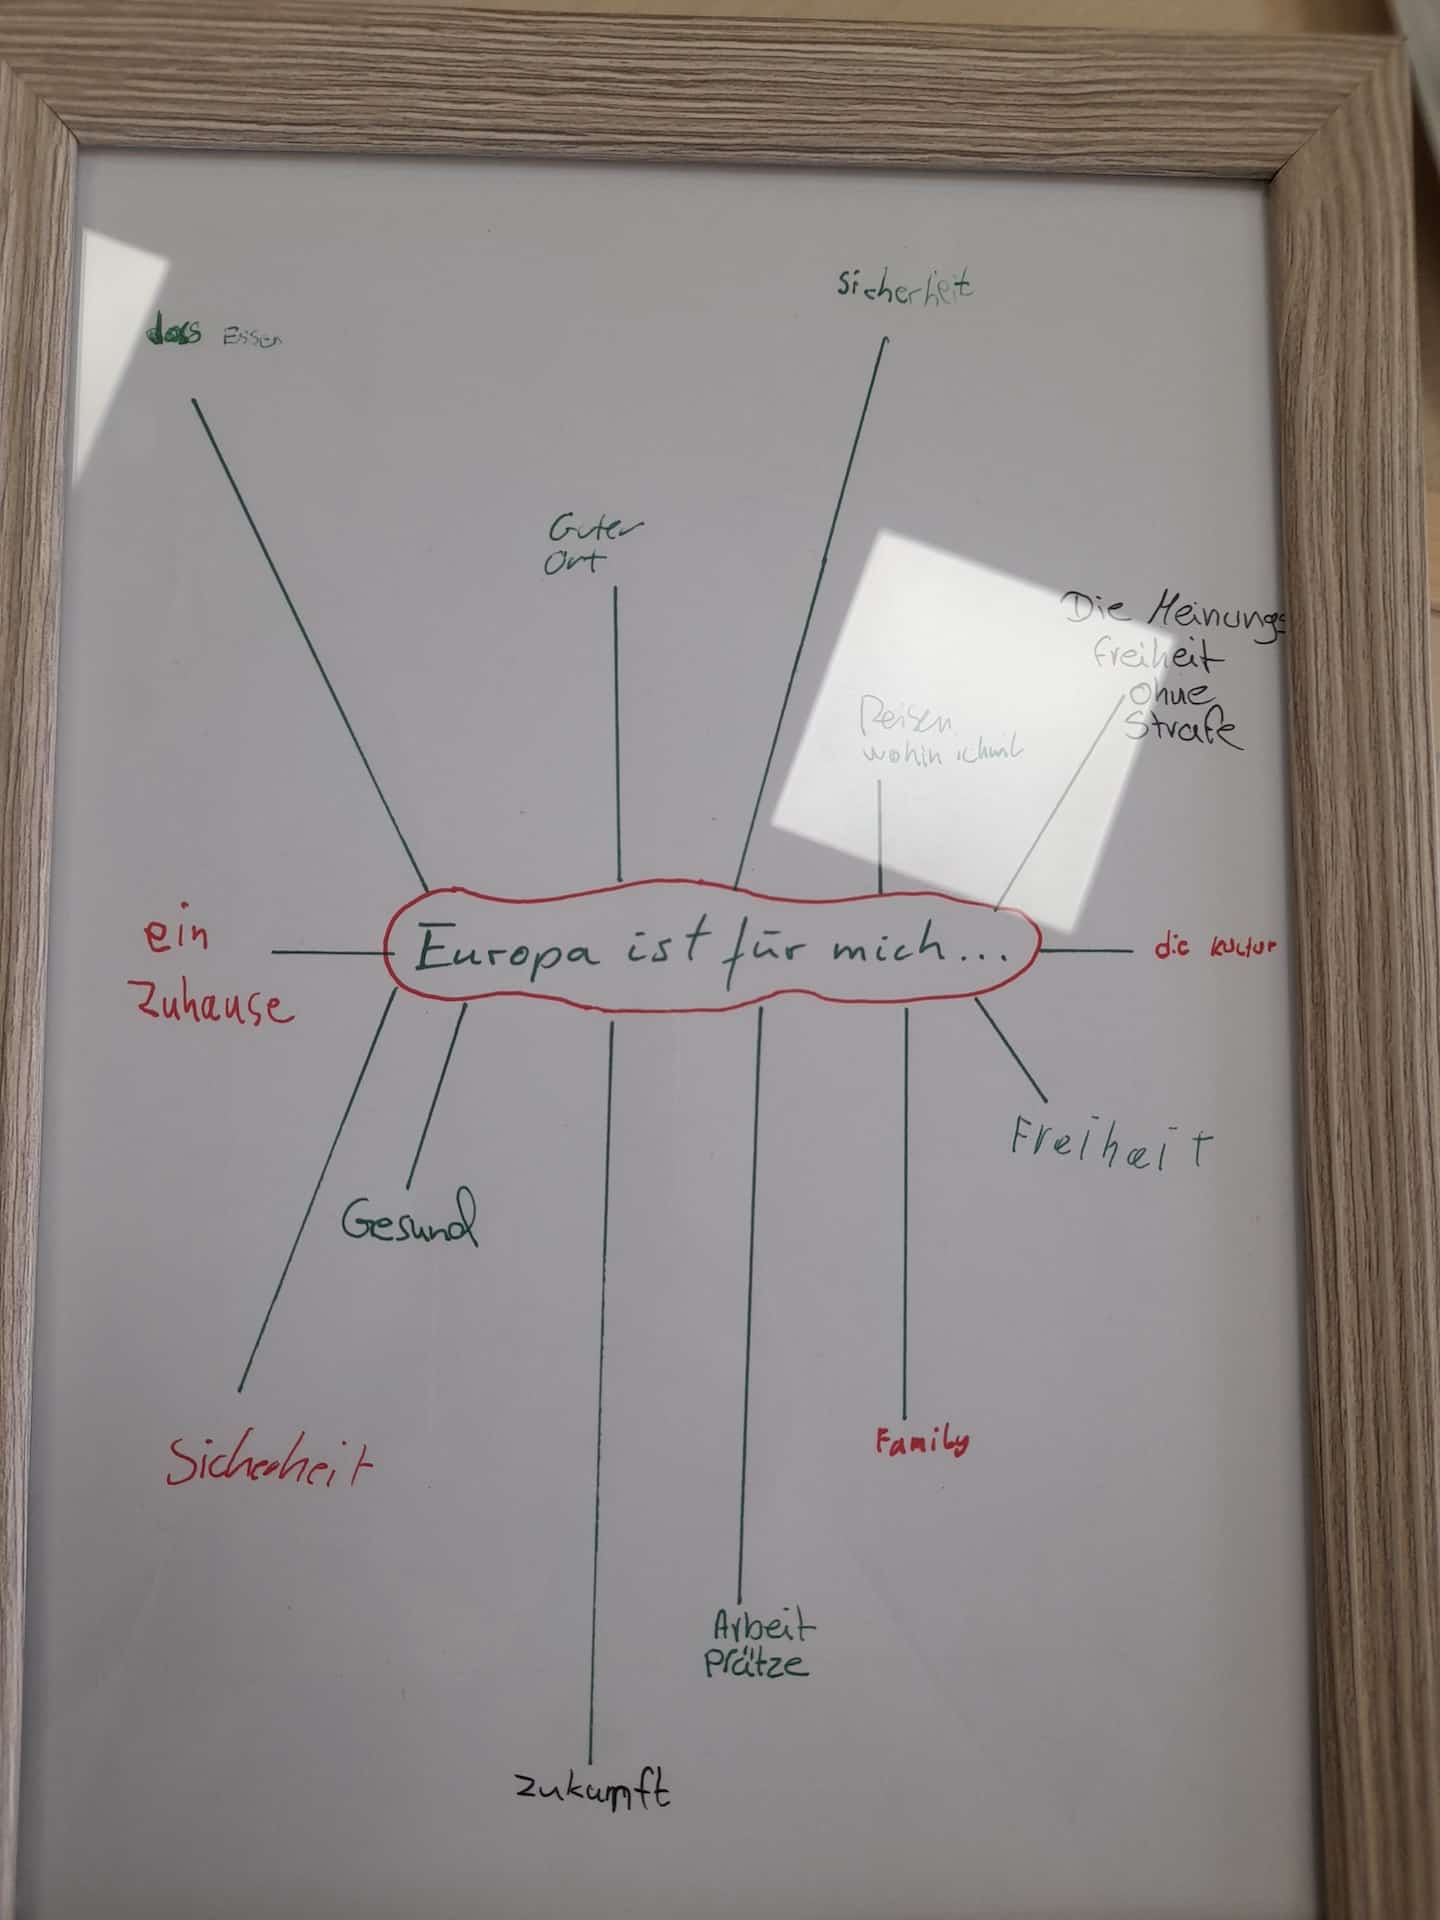 Sicherheit
das Essen
Guter
Ort
Die Meinungs
freiheit
ohne
Strafe
Reisen
wohin ich will
ein
Zuhause
Europa ist für mich...
die Kultur
Freiheit
Gesund
Sicherheit
Family
Arbeit
Prätze
Zukumft